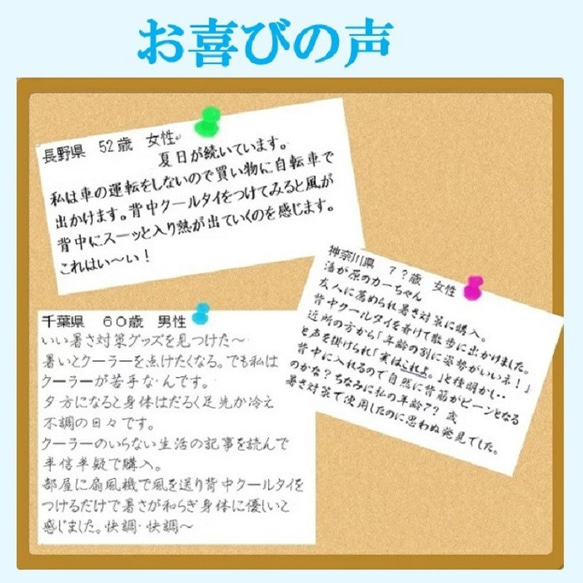 お喜びの声
長野県 52歳 女性
夏日が続いています。
私は車の運転をしないので買い物に自転車で
出かけます。背中クールタイをつけてみると風が
背中にスーッと入り熱が出ていくのを感じます。
これはい〜い!
神奈川県 7?歳 女性
湯が原のカーちゃん
友人に薦められ暑さ対策に購入。
背中クールタイを着けて散歩に出かけました。
近所の方から「年齢の割に姿勢がいいネ!」
と声を掛けられ「実はこれよ。」と種明かし…
背中に入れるので自然に背筋がピーンとなる
のかな?ちなみに私の年齢7?歳
暑さ対策で使用したのに思わぬ発見でした。
千葉県 60歳 男性
いい暑さ対策グッズを見つけた〜
暑いとクーラーを点けたくなる。でも私は
クーラーが苦手なんです。
夕方になると身体はだるく足先が冷え
不調の日々です。
クーラーのいらない生活の記事を読んで
半信半疑で購入。
部屋に扇風機で風を送り背中クールタイを
つけるだけで暑さが和らぎ身体に優しいと
感じました。快調・快調〜